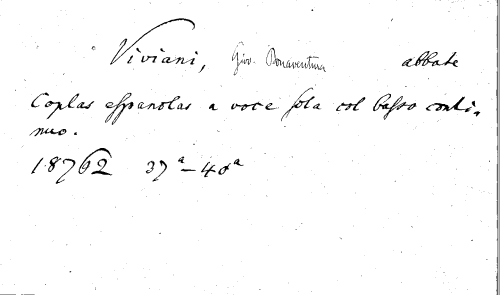 Viviani, Giov. Bonaventura abbate
Coplas espanolas a voce sola col basso conti-
nuo.
18762 37ª - 40ª